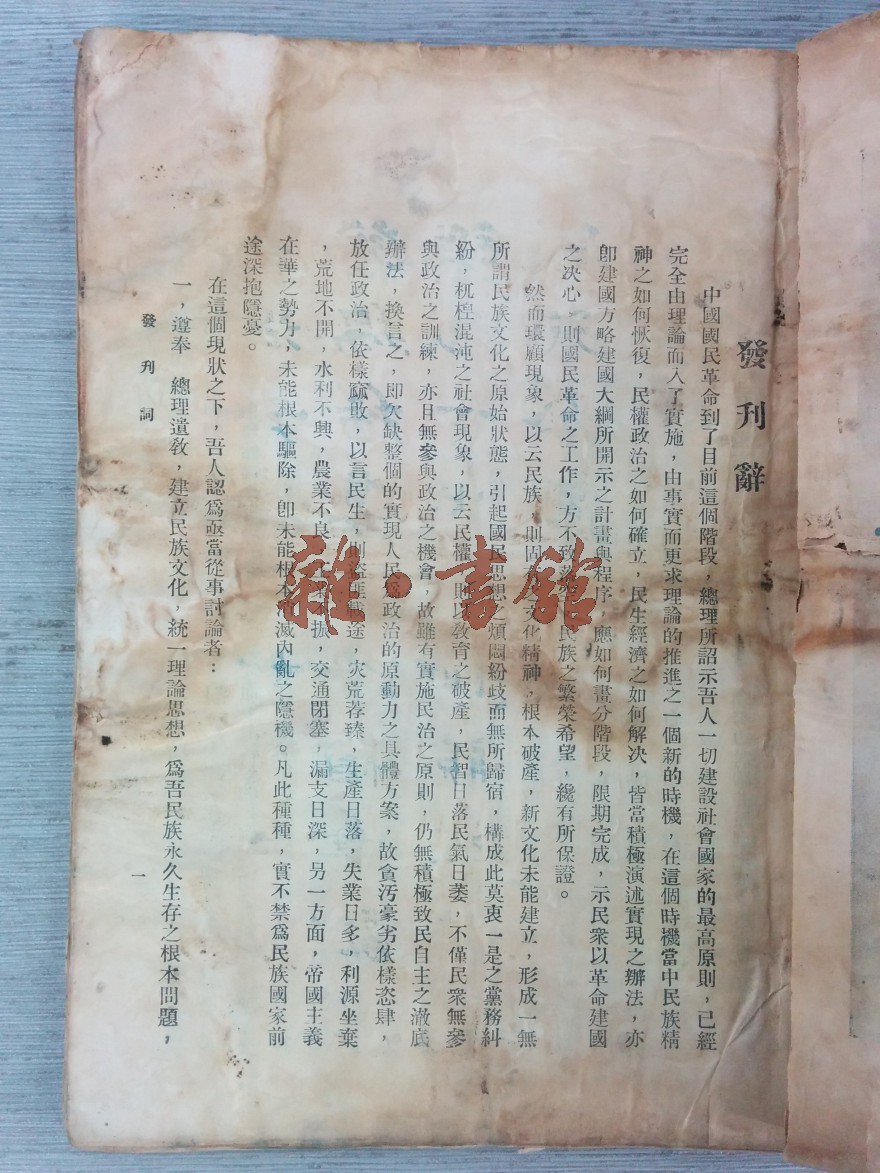 發刊辭
中國國民革命到了目前這個階段，總理所詔示吾人一切建設社會國家的最高原則，已經
完全由理論而入了實施，由事實而更求理論的推進之一個新的時機，在這個時機當中民族精
神之如何恢復，民權政治之如何確立，民生經濟之如何解决，皆當積極演述實現之辦法，亦
卽建國方略建國大綱所開示之計畫與程序，應如何畫分階段，限期完成，示民衆以革命建國
之决心，則國民革命之工作，方不致 民族之繁榮希望，纔有所保證。
然而環顧現象，以云民族，則固有 文化精神，根本破產，新文化未能建立，形成一無
所謂民族文化之原始狀態，引起國民思想之煩悶紛歧而無所歸宿，構成此莫衷一是之黨務糾
紛，杌楻混沌之社會現象，以云民權，則以敎育之破產，民智日落民氣日萎，不僅民衆無參
與政治之訓練，亦且無參與政治之機會，故雖有實施民治之原則，仍無積極致民自主之澈底
辦法，換言之，即欠缺整個的實現人民爲政治的原動力之具體方案，故貪汚豪劣依樣恣肆，
放任政治，依樣窳敗，以言民生，則盜匪載途，灾荒荐臻，生產日落，失業日多，利源坐棄
，荒地不開，水利不興，農業不良， 振，交通閉塞，漏支日深，另一方面，帝國主義
在華之勢力，未能根本驅除，卽未能根本 滅內亂之隱機。凡此種種，實不禁爲民族國家前
途深抱隱憂。
在這個現狀之下，吾人認爲亟當從事討論者：
一，遵奉　總理遺敎，建立民族文化，統一理論思想，爲吾民族永久生存之根本問題，
發刊詞
一
雜·書館